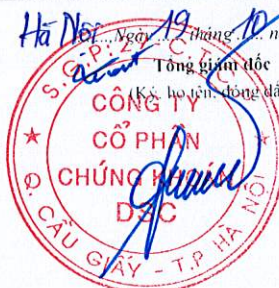 Hà Nội Ngày 19 tháng 10 n
Tổng giám đốc
(Ký, họ tên, đóng dấ
CÔNG TY
CỔ PHẦN
CHỨNG KHOÁN
DSC
Q. CẦU GIẤY - T.P HÀ NỘI